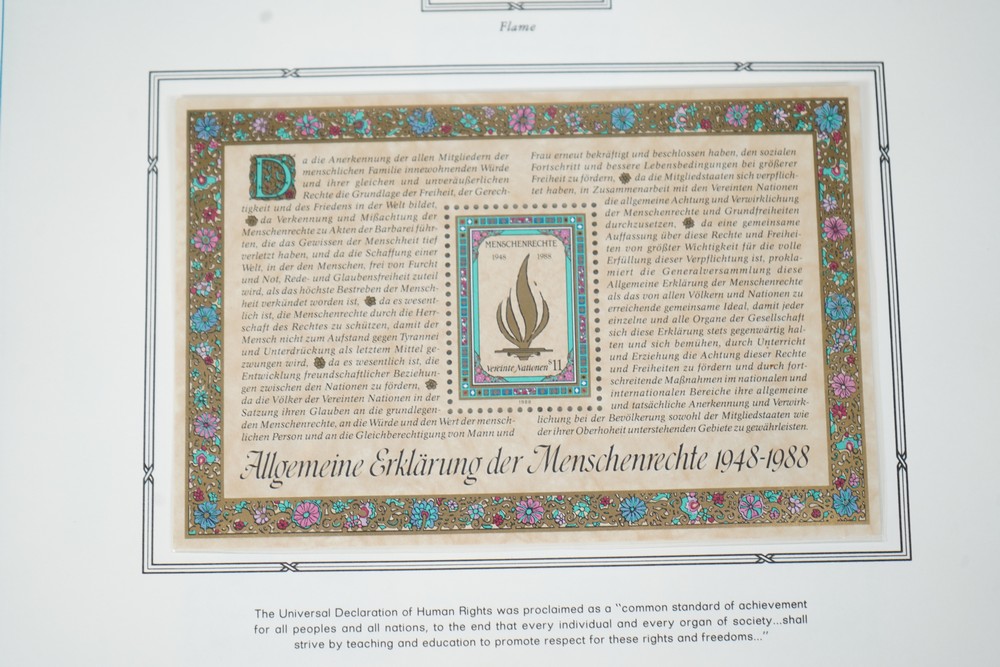 Flame
Da die Anerkennung der allen Mitgliedern der
menschlichen Familie innewohnenden Würde
und ihrer gleichen und unveräußerlichen
Rechte die Grundlage der Freiheit, der Gerech-
tigkeit und des Friedens in der Welt bildet,
da Verkennung und Mißachtung der
Menschenrechte zu Akten der Barbarei führ-
ten, die das Gewissen der Menschheit tief
verletzt haben, und da die Schaffung einer
Welt, in der den Menschen, frei von Furcht
und Not, Rede- und Glaubensfreiheit zuteil
wird, als das höchste Bestreben der Mensch-
heit verkündet worden ist, da es wesent-
lich ist, die Menschenrechte durch die Herr-
schaft des Rechtes zu schützen, damit der
Mensch nicht zum Aufstand gegen Tyrannei
und Unterdrückung als letztem Mittel ge-
zwungen wird, da es wesentlich ist, die
Entwicklung freundschaftlicher Beziehun-
gen zwischen den Nationen zu fördern,
da die Völker der Vereinten Nationen in der
Satzung ihren Glauben an die grundlegen-
den Menschenrechte, an die Würde und den Wert der mensch-
lichen Person und an die Gleichberechtigung von Mann und
Frau erneut bekräftigt und beschlossen haben, den sozialen
Fortschritt und bessere Lebensbedingungen bei größerer
Freiheit zu fördern, da die Mitgliedstaaten sich verpflich-
tet haben, in Zusammenarbeit mit den Vereinten Nationen
die allgemeine Achtung und Verwirklichung
der Menschenrechte und Grundfreiheiten
durchzusetzen, da eine gemeinsame
Auffassung über diese Rechte und Freihei-
ten von größter Wichtigkeit für die volle
Erfüllung dieser Verpflichtung ist, prokla-
miert die Generalversammlung diese
Allgemeine Erklärung der Menschenrechte
als das von allen Völkern und Nationen zu
erreichende gemeinsame Ideal, damit jeder
einzelne und alle Organe der Gesellschaft
sich diese Erklärung stets gegenwärtig hal-
ten und sich bemühen, durch Unterricht
und Erziehung die Achtung dieser Rechte
und Freiheiten zu fördern und durch fort-
schreitende Maßnahmen im nationalen und
internationalen Bereiche ihre allgemeine
und tatsächliche Anerkennung und Verwirk-
lichung bei der Bevölkerung sowohl der Mitgliedstaaten wie
der ihrer Oberhoheit unterstehenden Gebiete zu gewährleisten.
MENSCHENRECHTE
1948 1988
Vereinte Nationen S11
1988
Allgemeine Erklärung der Menschenrechte 1948-1988
The Universal Declaration of Human Rights was proclaimed as a "common standard of achievement
for all peoples and all nations, to the end that every individual and every organ of society...shall
strive by teaching and education to promote respect for these rights and freedoms..."